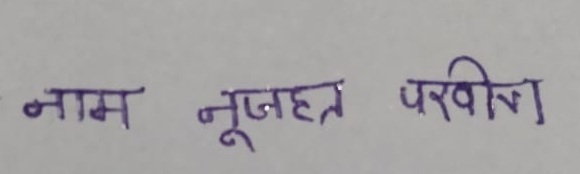 नाम नूजहत परवीन